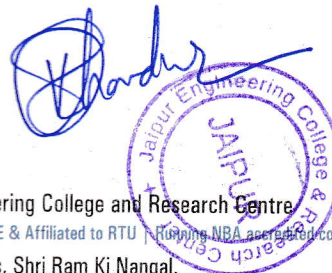 Jaipur Engineering College & Research Centre
JAIPUR
ering College and Research Centre
E & Affiliated to RTU | Running NBA accredited co
c, Shri Ram Ki Nangal,